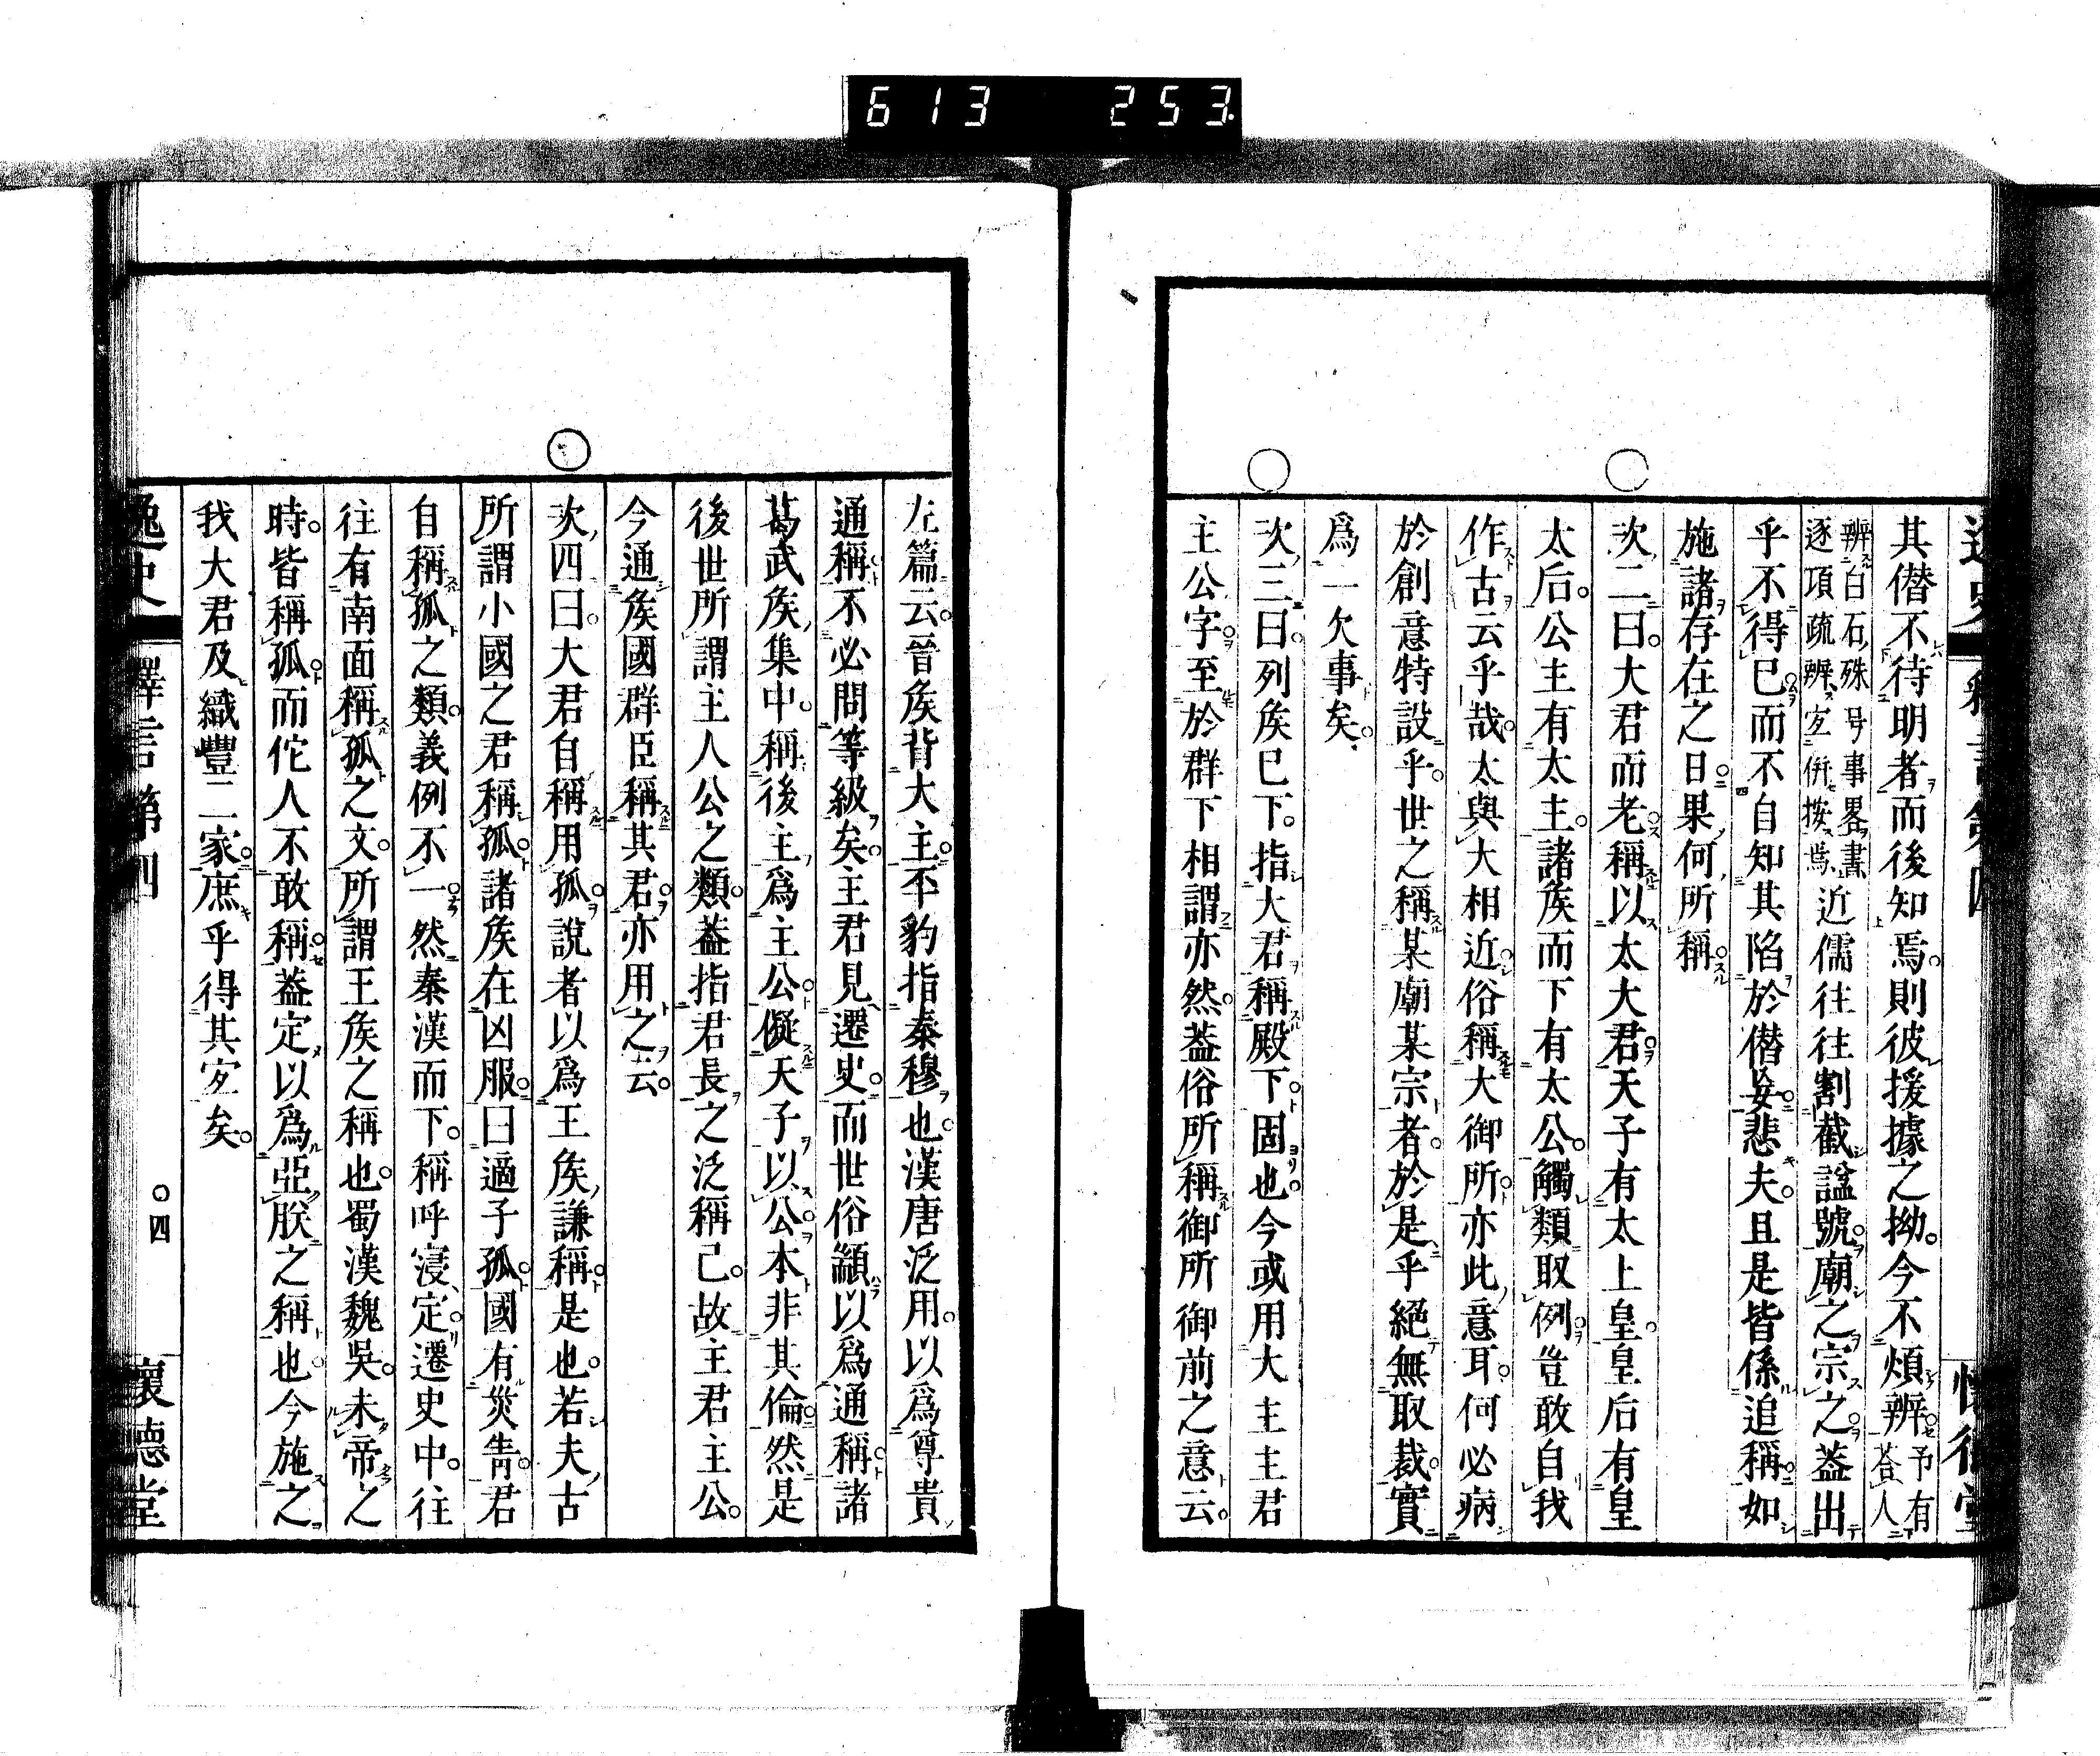 613 253
逸史 釋言第四 懷德堂
其僣不待明者而後知焉則彼援據之拗今不煩辨予有荅人
辨白石殊号事畧書逐項疏辨宐併按焉近儒往往割截諡號廟之宗之葢出
乎不得已而不自知其陷於僣妄悲夫且是皆係追稱如
施諸存在之日果何所稱
次二曰大君而老稱以太大君天子有太上皇皇后有皇
太后公主有太主諸矦而下有太公觸類取例豈敢自我
作古云乎哉太與大相近俗稱大御所亦此意耳何必病
於創意特設乎世之稱某廟某宗者於是乎絕無取裁實
爲一欠事矣
次三曰列矦已下指大君稱殿下固也今或用大主主君
主公字至於群下相謂亦然葢俗所稱御所御前之意云
左篇云晉矦背大主丕豹指秦穆也漢唐泛用以爲尊貴
通稱不必問等級矣主君見遷史而世俗籲以爲通稱諸
葛武矦集中稱後主爲主公儗天子以公本非其倫然是
後世所謂主人公之類葢指君長之泛稱已故主君主公
今通矦國群臣稱其君亦用之云
次四曰大君自稱用孤說者以爲王矦謙稱是也若夫古
所謂小國之君稱孤諸矦在凶服曰適子孤國有災眚君
自稱孤之類義例不一然秦漢而下稱呼寖定遷史中往
往有南面稱孤之文所謂王矦之稱也蜀漢魏吳未帝之
時皆稱孤而佗人不敢稱葢定以爲亞朕之稱也今施之
我大君及織豐二家庶乎得其宐矣
逸史 釋言第四 四 懷德堂